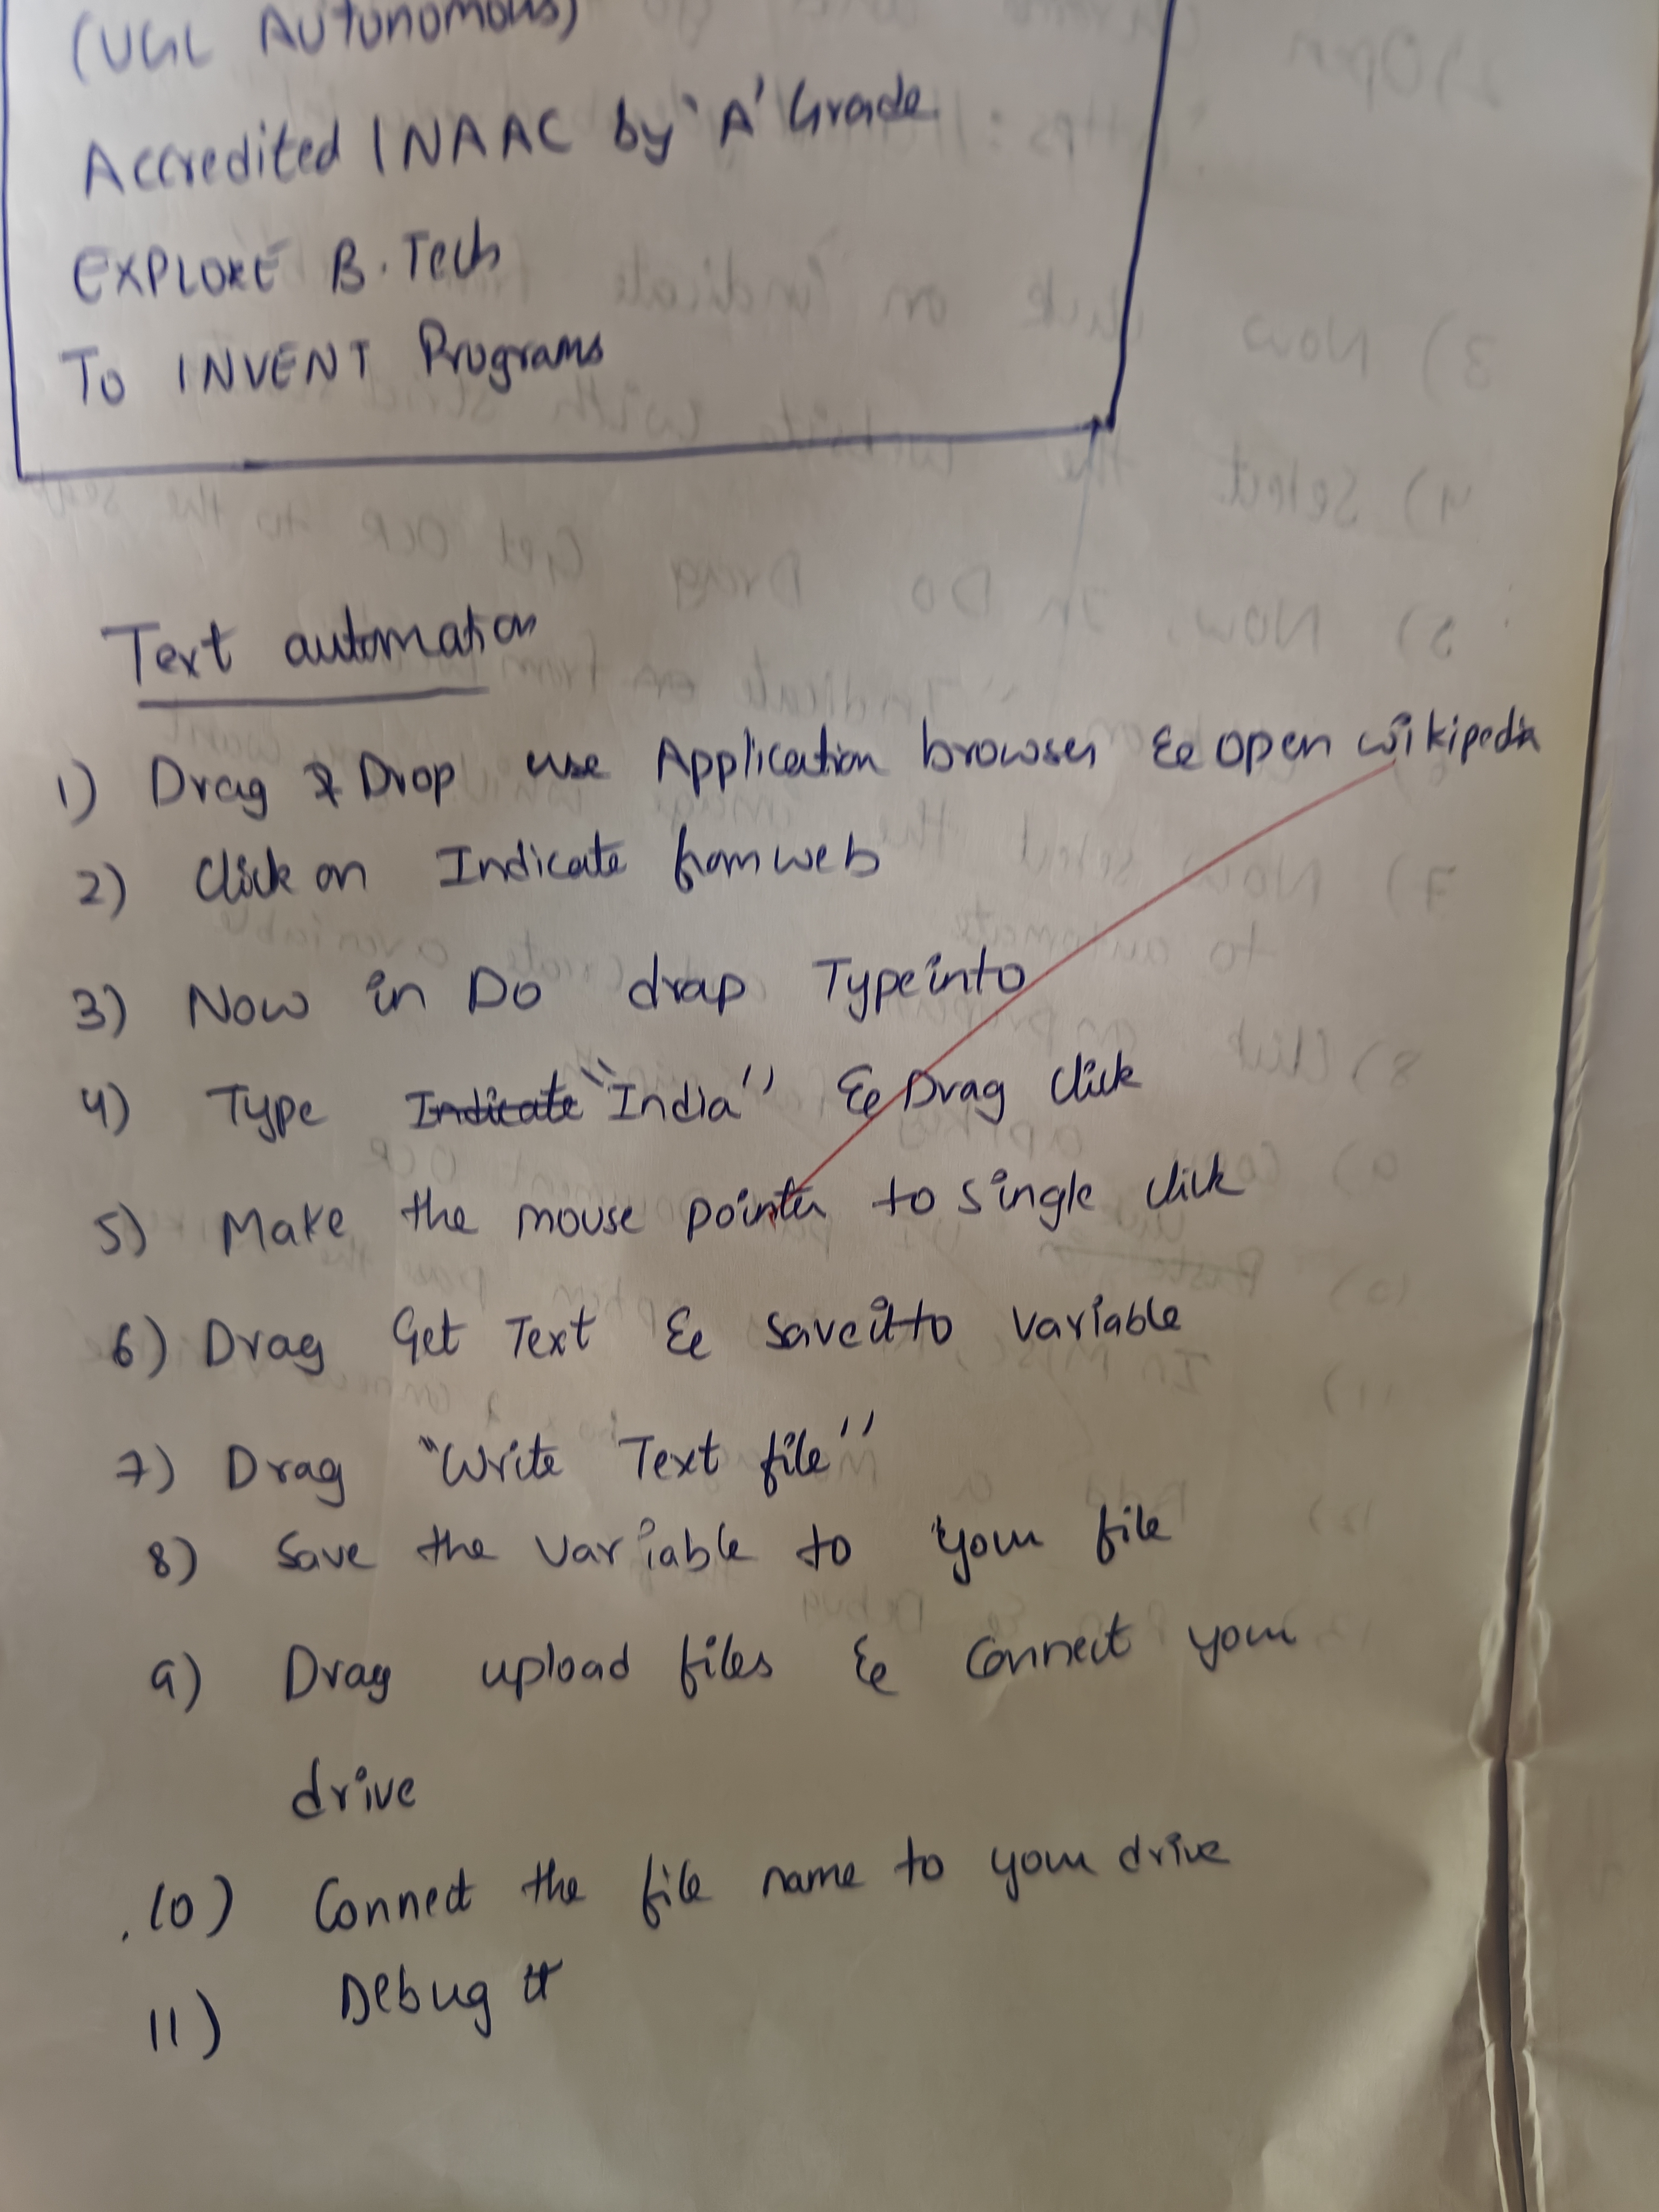 (UGC AUTONOMOUS)
Accredited INAAC by 'A' Grade
EXPLORE B.Tech
To INVENT Programs
Text automation
1) Drag & Drop use Application browser & open wikipedia
2) Click on Indicate from web
3) Now in Do drap Typeinto
4) Type Indicate "India" & Drag click
5) Make the mouse pointer to single click
6) Drag Get Text & save it to variable
7) Drag "Write Text file"
8) Save the variable to your file
9) Drag upload files & connect your
drive
10) Connect the file name to your drive
11) Debug it